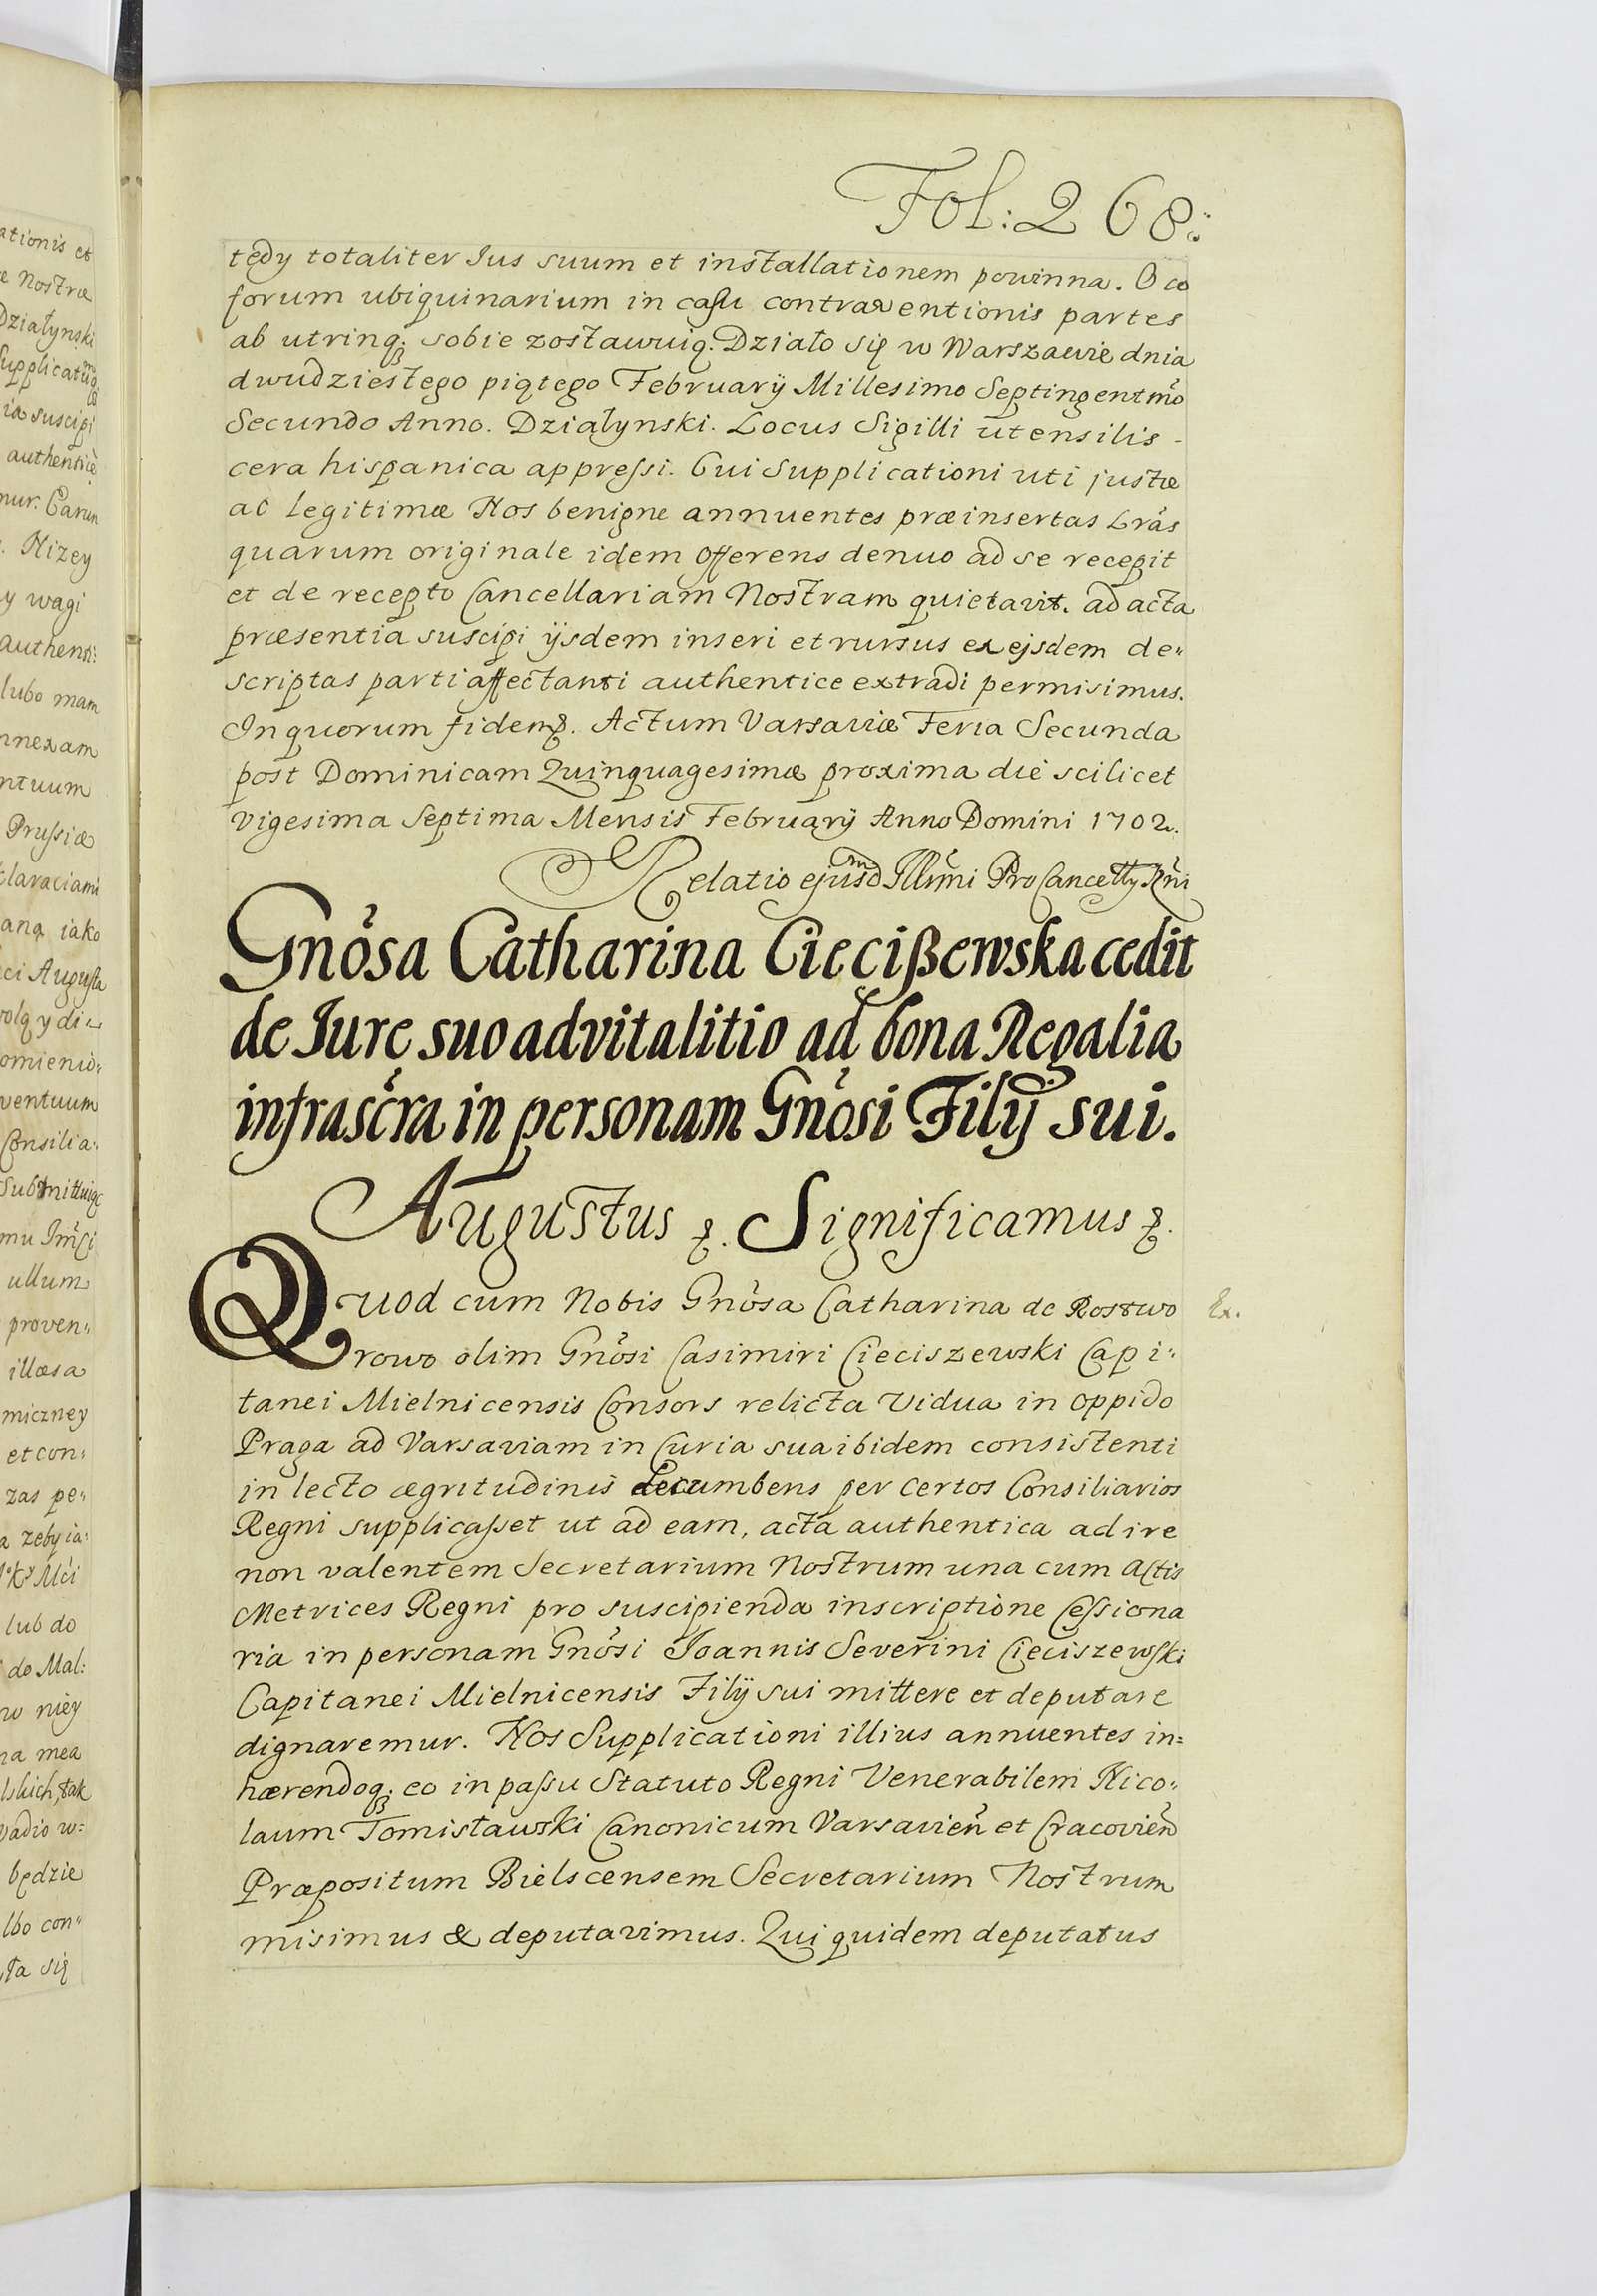 Fol: 268.
tędy totaliter Ius suum et installationem powinna. O co
forum ubiquinarium in casu contraventionis partes
ab utrinq; sobie zostawuią. Działo się w Warszawie dnia
dwudziestego piątego February Millesimo Septingentmo
Secundo Anno. Działynski. Locus Sigilli utensilis -
cera hispanica appressi. Cui Supplicationi uti justæ
ac legitimæ Nos benigne annuentes præinsertas Lrãs
quarum originale idem offerens denuo ad se recepit
et de recepto Cancellariam Nostram quietavit. ad acta
præsentia suscipi ijsdem inseri et rursus ex ejsdem de„
scriptas parti affectanti authentice extradi permisimus.
In quorum fidem &. Actum Varsaviæ Feria Secunda
post Dominicam Quinquagesimæ proxima die scilicet
vigesima Septima Mensis February Anno Domini 1702.
Relatio ejusdm Illmi ProCancelly Rni
Gnosa Catharina Ciecißewska cedit
de Iure suo advitalitio ad bona Regalia
infrascra in personam Gnosi Filÿ sui.
Augustus &. Significamus &.
Quod cum Nobis Gnosa Catharina de Rostwo
rowo olim Gnosi Casimiri Cieciszewski Capi„
tanei Mielnicensis Consors relicta Vidua in oppido
Praga ad Varsaviam in Curia sua ibidem consistenti
in lecto ægritudinis decumbens per certos Consiliarios
Regni supplicasset ut ad eam, acta authentica adire
non valentem Secretarium Nostrum una cum Actis
Metrices Regni pro suscipienda inscriptione Cessiona
ria in personam Gnosi Joannis Severini Cieciszewski
Capitanei Mielnicensis Filÿ sui mittere et deputare
dignaremur. Nos Supplicationi illius annuentes in=
hærendoq; eo in passu Statuto Regni Venerabilem Nico„
laum Tomisławski Canonicum Varsavien et Cracovien
Præpositum Bielscensem Secretarium Nostrum
misimus & deputavimus. Qui quidem deputatus